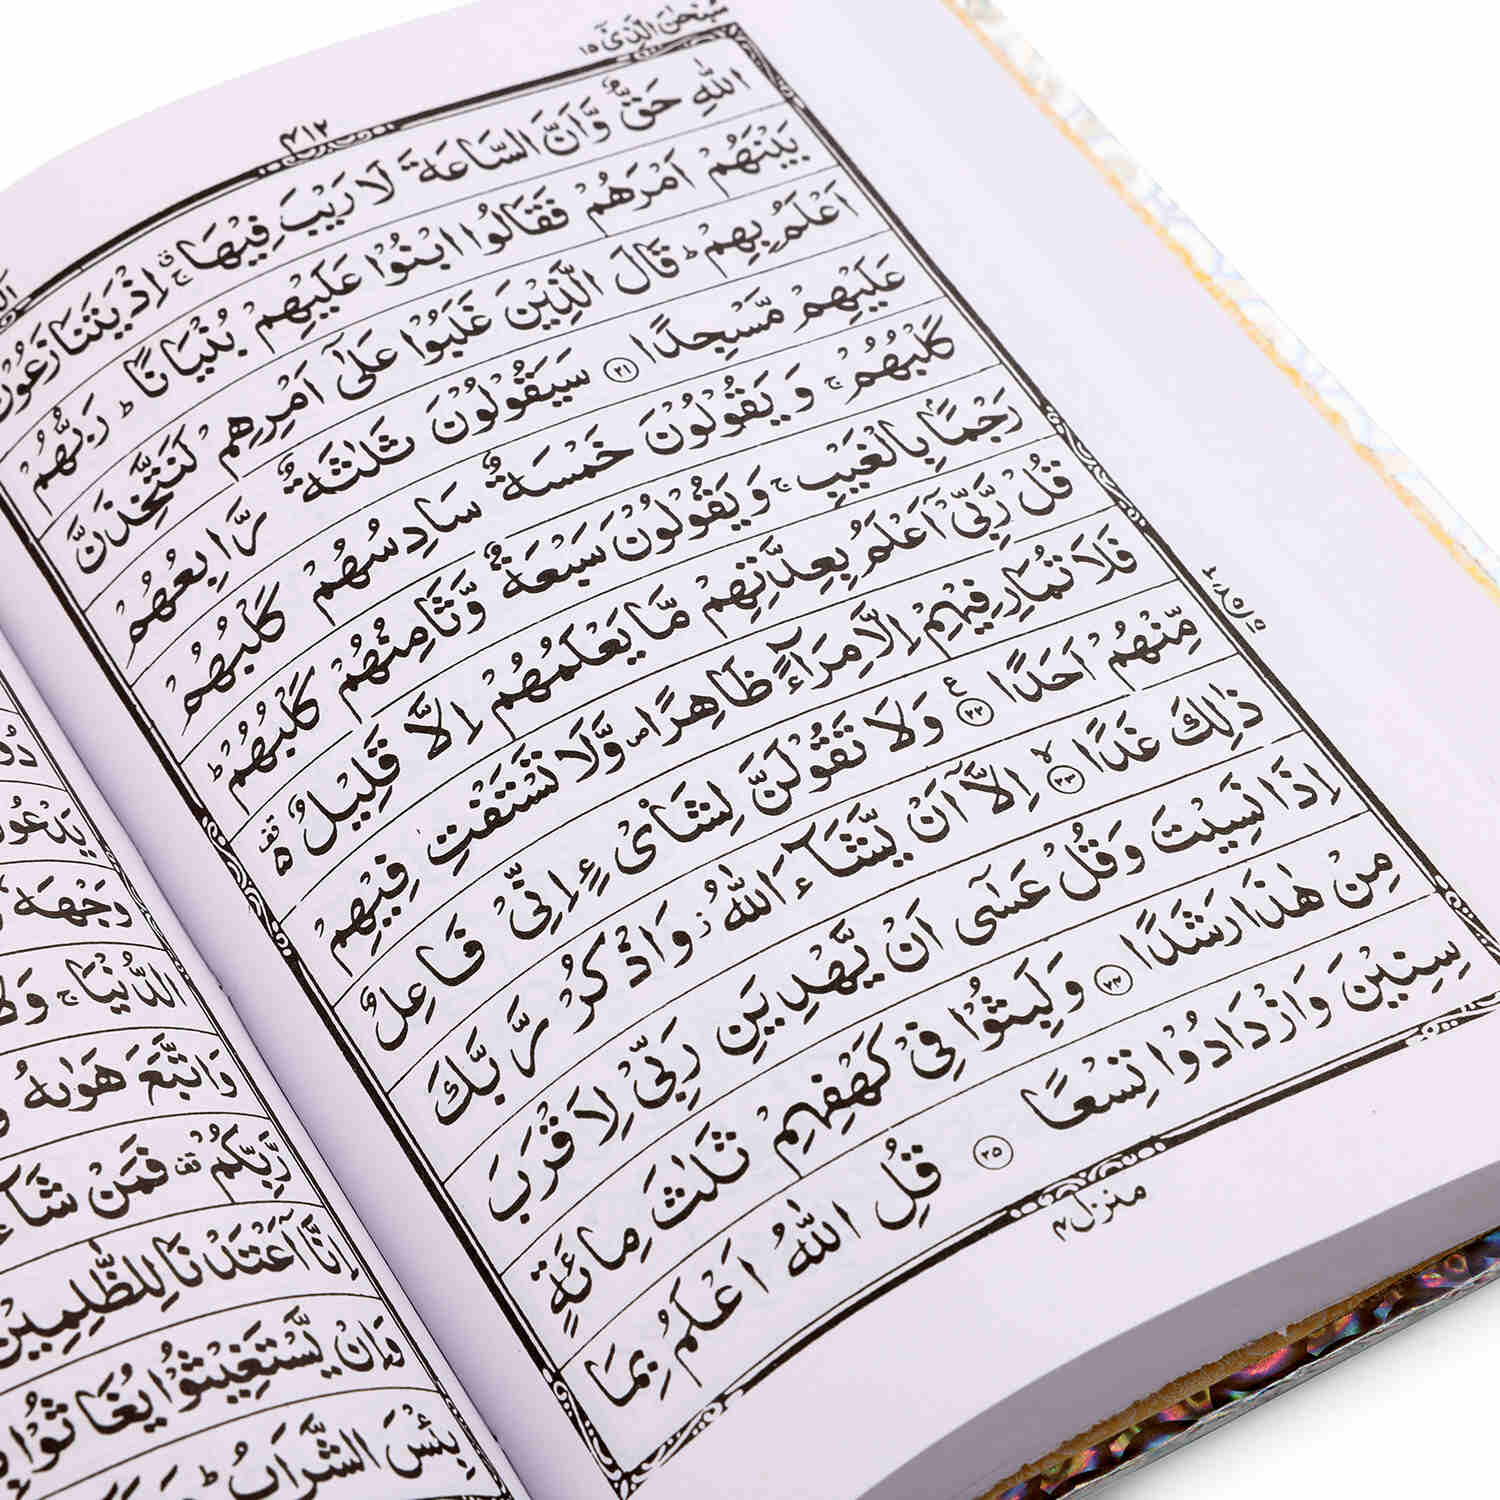 سبحٰن الذی ١٥
٤١٢
اللّٰهِ حَقٌّ وَّاَنَّ السَّاعَةَ لَا رَيْبَ فِيْهَا ۚ اِذْ يَتَنَازَعُوْنَ
بَيْنَهُمْ اَمْرَهُمْ فَقَالُوا ابْنُوْا عَلَيْهِمْ بُنْيَانًا ؕ رَبُّهُمْ
اَعْلَمُ بِهِمْ ؕ قَالَ الَّذِيْنَ غَلَبُوْا عَلٰٓى اَمْرِهِمْ لَنَتَّخِذَنَّ
عَلَيْهِمْ مَّسْجِدًا ٢١ سَيَقُوْلُوْنَ ثَلٰثَةٌ رَّابِعُهُمْ
كَلْبُهُمْ ۚ وَيَقُوْلُوْنَ خَمْسَةٌ سَادِسُهُمْ كَلْبُهُمْ
رَجْمًۢا بِالْغَيْبِ ۚ وَيَقُوْلُوْنَ سَبْعَةٌ وَّثَامِنُهُمْ كَلْبُهُمْ ؕ
قُلْ رَّبِّيْٓ اَعْلَمُ بِعِدَّتِهِمْ مَّا يَعْلَمُهُمْ اِلَّا قَلِيْلٌ ۫
فَلَا تُمَارِ فِيْهِمْ اِلَّا مِرَآءً ظَاهِرًا ۪ وَّلَا تَسْتَفْتِ فِيْهِمْ
مِّنْهُمْ اَحَدًا ٢٢ وَلَا تَقُوْلَنَّ لِشَایْءٍ اِنِّيْ فَاعِلٌ
ذٰلِكَ غَدًا ٢٣ اِلَّآ اَنْ يَّشَآءَ اللّٰهُ ۫ وَاذْكُرْ رَّبَّكَ
اِذَا نَسِيْتَ وَقُلْ عَسٰٓى اَنْ يَّهْدِيَنِ رَبِّيْ لِاَقْرَبَ
مِنْ هٰذَا رَشَدًا ٢٤ وَلَبِثُوْا فِيْ كَهْفِهِمْ ثَلٰثَ مِائَةٍ
سِنِيْنَ وَازْدَادُوْا تِسْعًا ٢٥ قُلِ اللّٰهُ اَعْلَمُ بِمَا
منزل ٤
وَجْهَهٗ
الدُّنْيَا ۚ
وَاتَّبَعَ هَوٰىهُ
رَّبِّكُمْ ۫ فَمَنْ شَآءَ
اِنَّآ اَعْتَدْنَا لِلظّٰلِمِيْنَ
وَاِنْ يَّسْتَغِيْثُوْا يُغَاثُوْا
بِئْسَ الشَّرَابُ ؕ